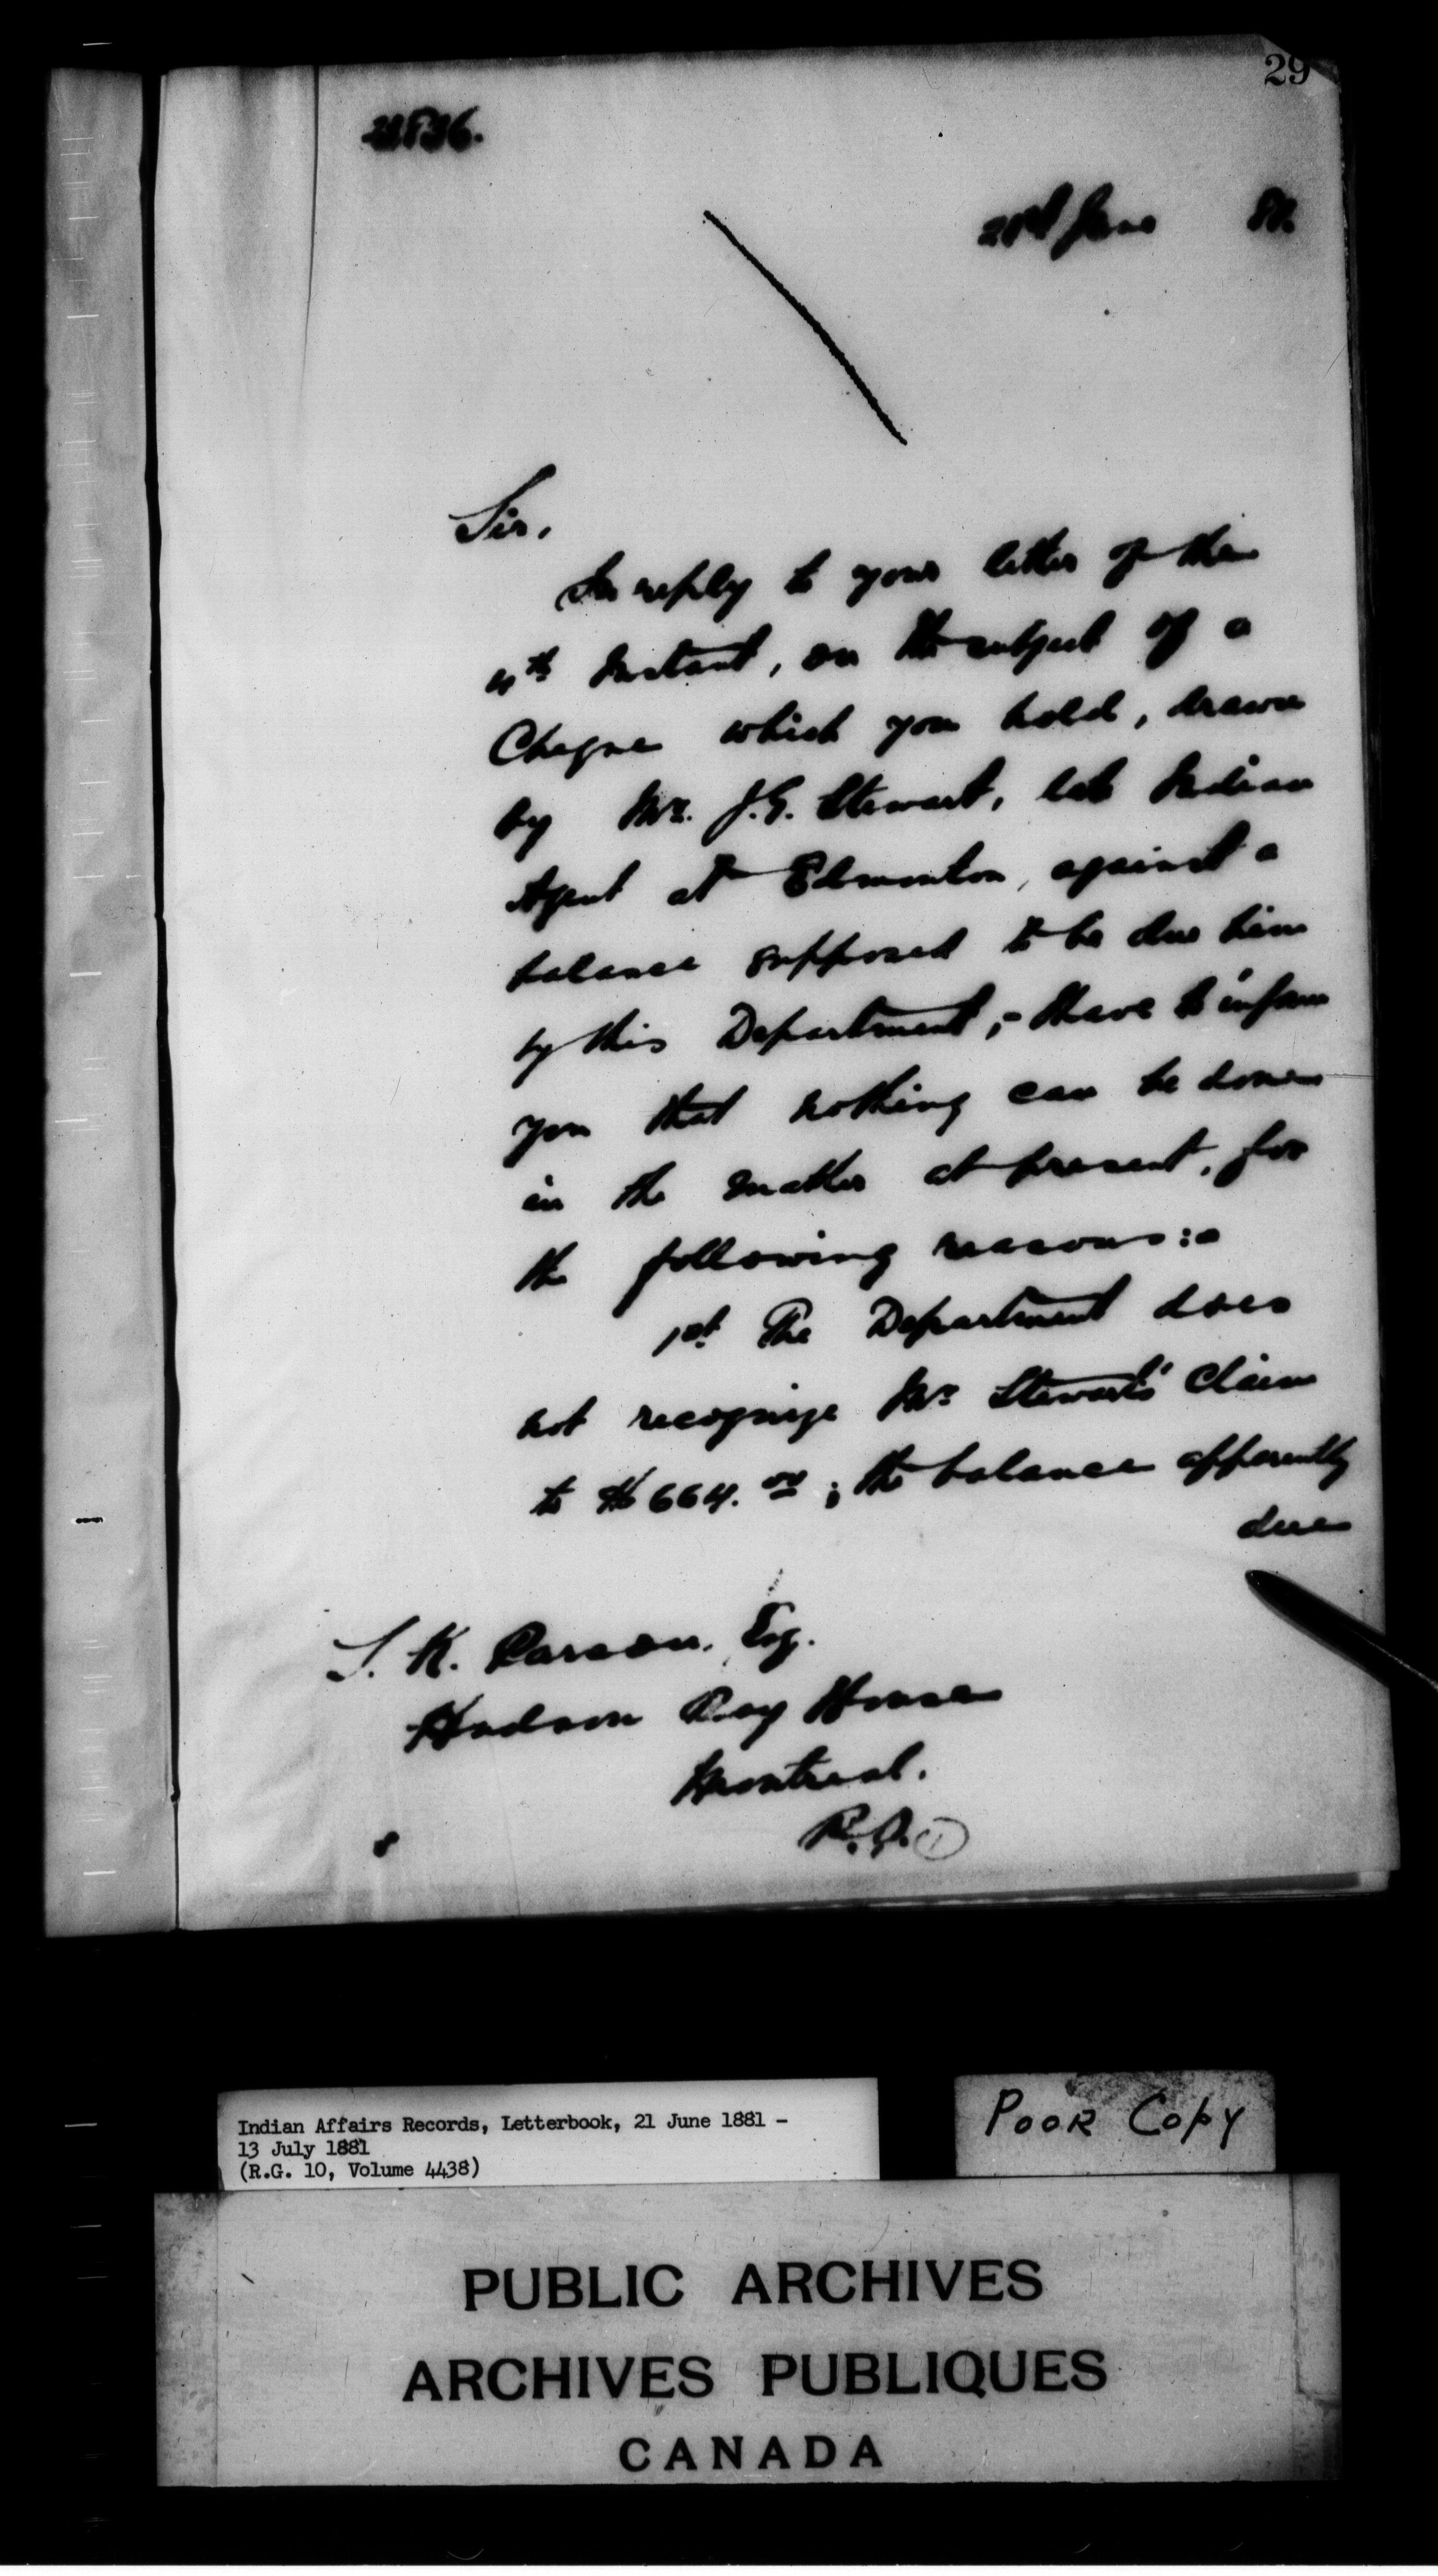 29
June 81.
Sir,
In reply to your letter of the
4th Instant, on the subject of a
Cheque which you hold, drawn
by Mr. J.G. Stewart, late Indian
Agent at Edmonton, against a
balance supposed to be due him
by this Department,- I have to inform
you that nothing can be done
in the matter at present, for
the following reasons:-
1st. The Department does
not recognize Mr. Stewart's Claim
to $664.00; the balance apparently
due
S. K. Parson, Esq.
Hudson Bay House
Montreal.
P.Q.
Indian Affairs Records, Letterbook, 21 June 1881 -
13 July 1881
(R.G. 10, Volume 4438)
POOR COPY
PUBLIC ARCHIVES
ARCHIVES PUBLIQUES
CANADA